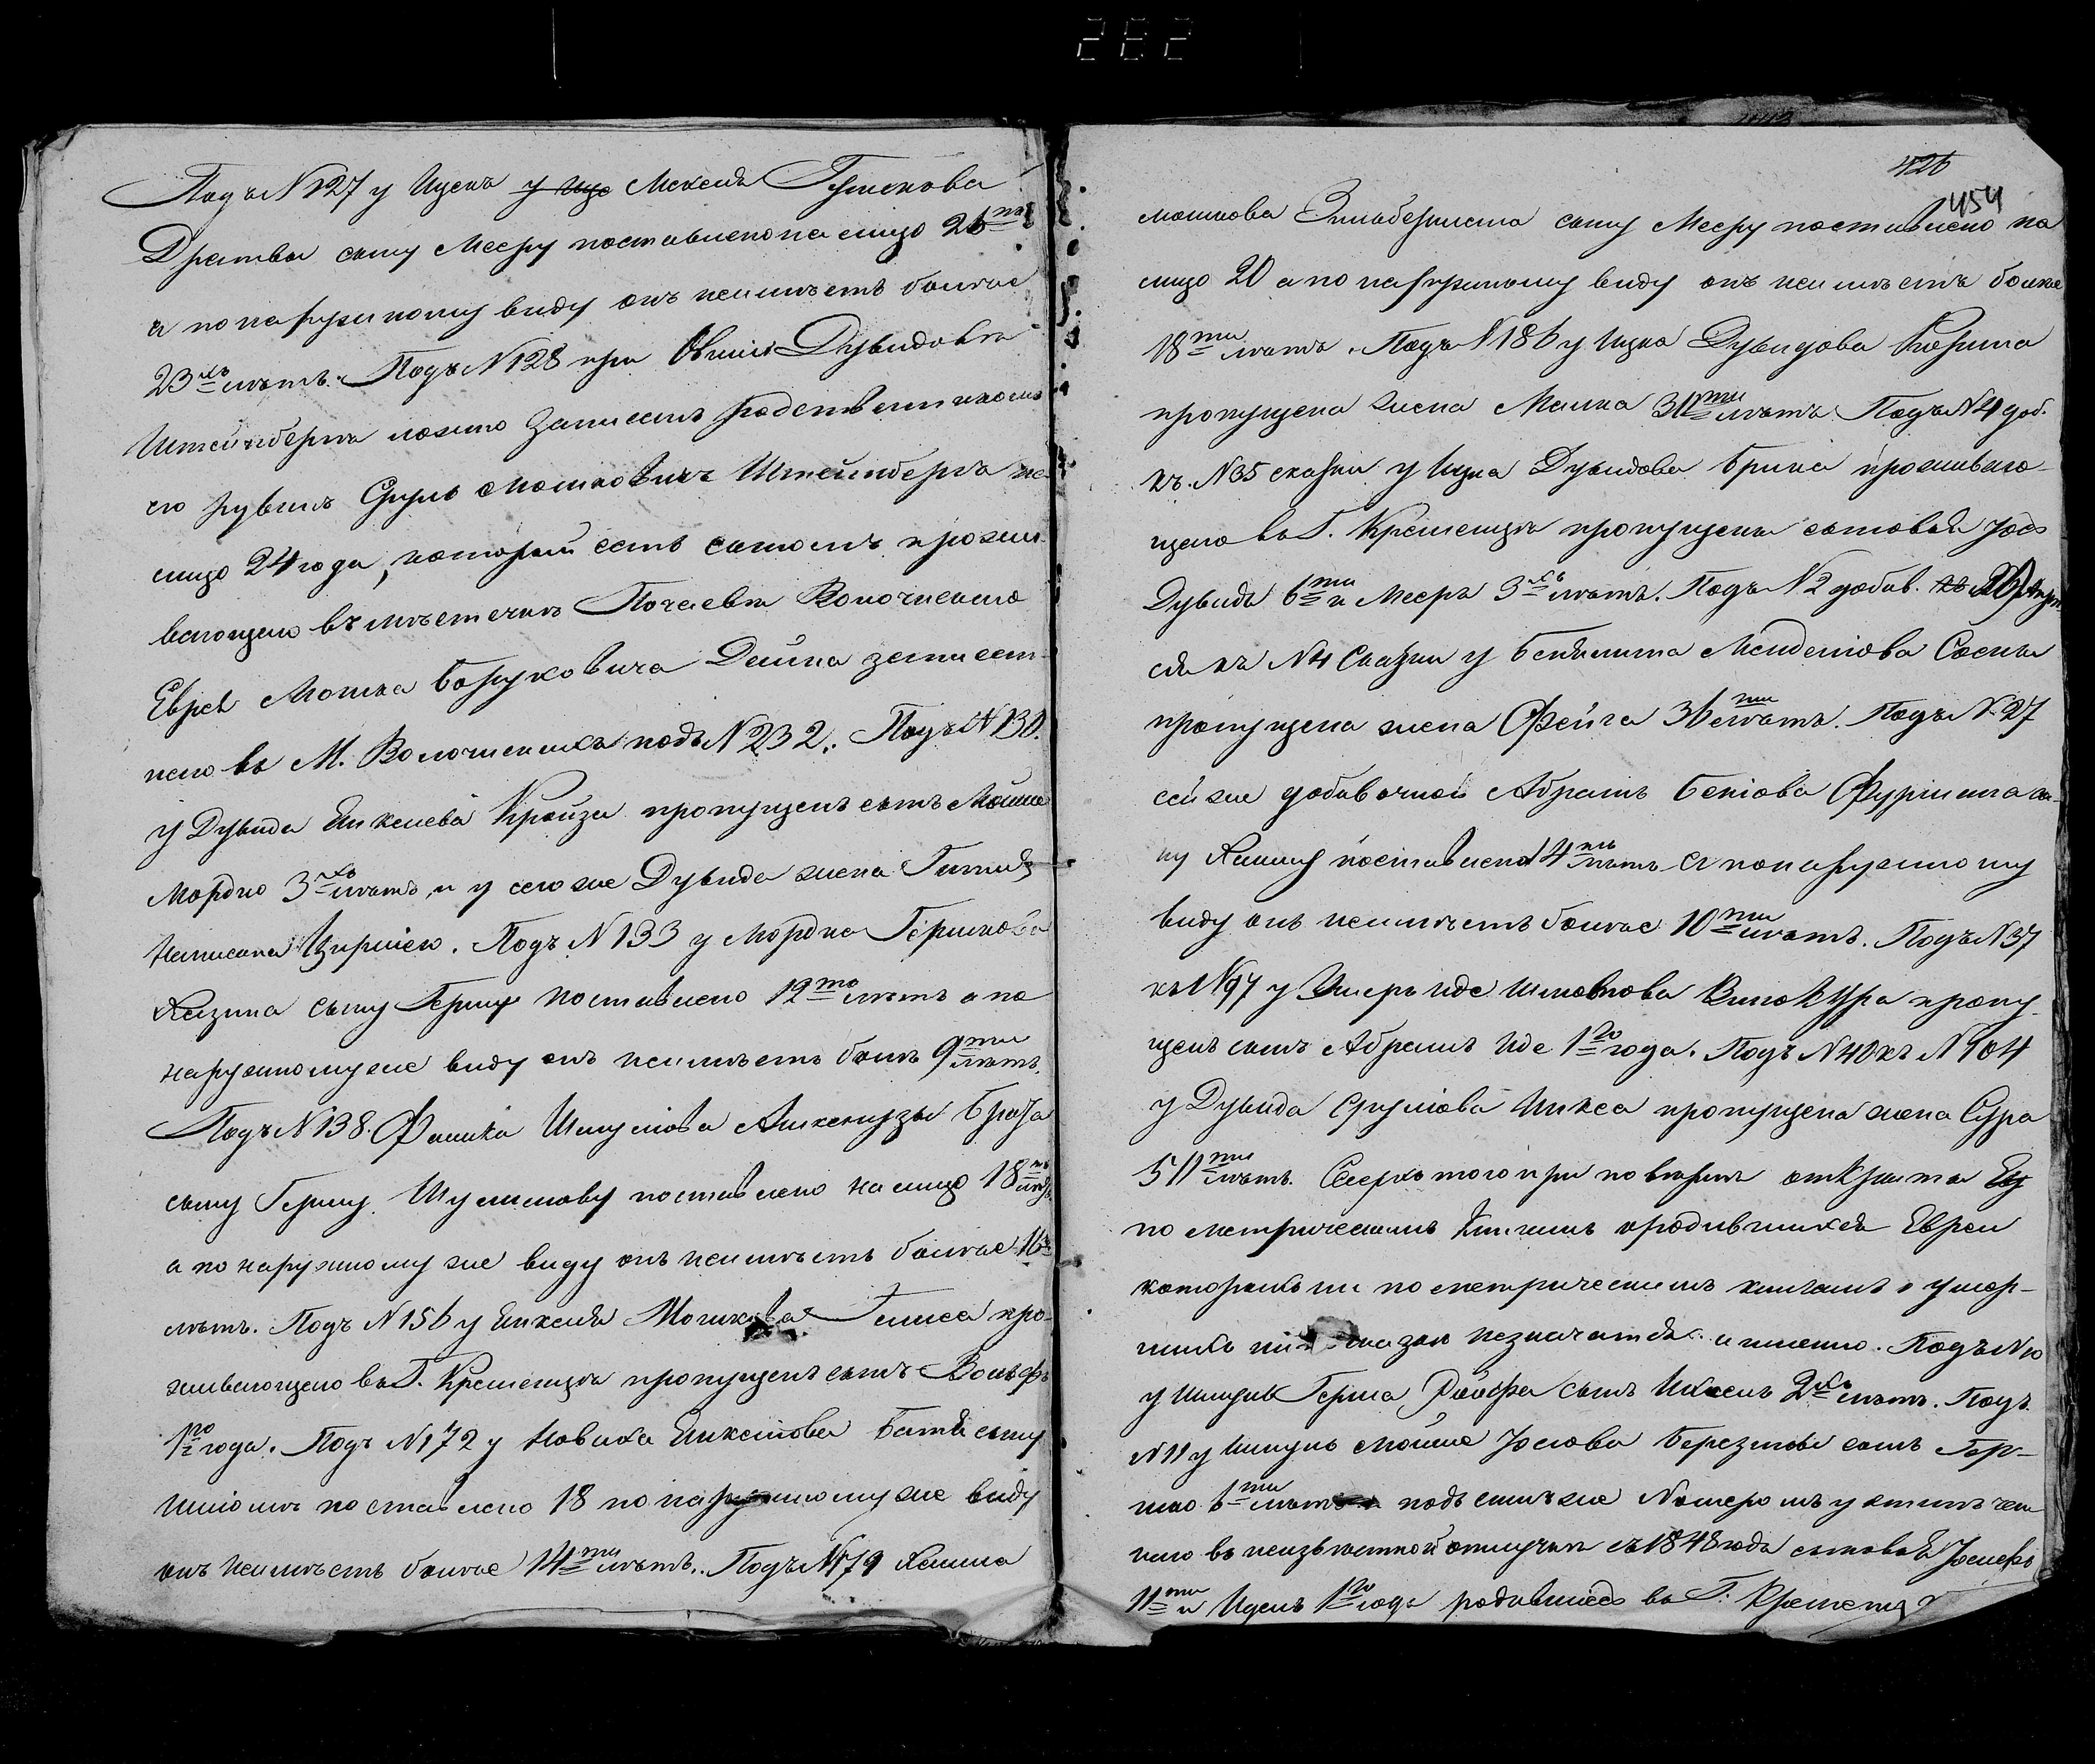 282
Подъ N 127 у Ицекъ у Ице Мекеля Гершкова
Дратвы сыну Мееру поставлено на лицо 26
а по наружному виду онъ неимѣетъ болѣе
23хъ лѣтъ. Подъ N 128 при Овши Дувидовѣ
Штейнберга ложно записанъ родственникомъ
его Рувинъ Сруль Мошковичъ Штейнбергъ на
лицо 24 года, который есть сыномъ прожи
вающего въ мѣстечкѣ Почаевѣ Волочискаго
Еврея Мошка Боруховича Дейша записан
ного въ М. Волочискахъ подъ N 232. Подъ N 130.
у Дувида Янкелева Крейза пропущенъ сынъ Мойше
Мордко 3хъ лѣтъ, и у сего же Дувида жена Гитля
написана Цирлею. Подъ N 133 у Мордка Гершкова
Хазина сыну Гершу поставлено 12то лѣтъ а по
наружному же виду онъ неимѣетъ болѣ 9ти лѣтъ.
Подъ N 138. Фишка Шмулiова Ашкенузы брата
сыну Гершу Шулимову поставлено на лицо 18ть лѣтъ
а по наружному же виду онъ неимѣетъ болѣе 16
лѣтъ. Подъ N 156 у Янкеля Мошкова Гелиса про
живающего въ Г. Кременцѣ пропущенъ сынъ Вольфъ
1го года. Подъ N 172 у Новиха Янкелiова Батя сыну
Шліомѣ поставлено 18 по наружному же виду
онъ неимѣетъ болѣе 14ти лѣтъ. Подъ N 179 Хаима
426
454
мошкова Зильбермана сыну Мееру поставлено на
лицо 20 а по наружному виду онъ неимѣетъ болѣе
18ти лѣтъ. Подъ N 186 у Ицка Дувидова Корина
пропущена жена Малка 30ти лѣтъ Подъ N 4 доб.
къ N 35 сказки у Ицка Дувидова Брика проживаю-
щего въ Г. Кременцѣ пропущены сыновья Iось
Дувидъ 6ти и Мееръ 3хъ лѣтъ. Подъ N 2 добав.
ся къ N 4 Сказки у Беньямина Менделiова Сосны
пропущена жена Фейга 36 лѣтъ. Подъ N 27
сей же добавочной Абрамъ Бенiова Фурмана сы-
ну Хаиму поставлено 14ть лѣтъ а по наружному
виду онъ неимѣетъ болѣе 10ти лѣтъ. Подъ N 37
къ N 97 у Умеръ Иде Шмовлова Винокура пропу-
щенъ сынъ Абрамъ Иде 1го года. Подъ N 40 къ N 104
у Дувида Срулiова Шикса пропущена жена Сура
50ти лѣтъ. Сверхъ того при повѣркѣ открыты
по метрическимъ книгамъ уродившихся Евреи
которыхъ ни по метрическимъ книгамъ о умер-
шихъ ни сказкѣ незначатся. а именно. Подъ N 10
у Шмуль Герша Ройфа сынъ Ихиелъ 2хъ лѣтъ. Подъ
N 11 у Шмуль Мойше Iослова Березины сынъ Гер-
шко 6ти лѣтъ подъ симъ же Номеромъ у
ного въ неизвѣстной отлучкѣ съ 1848 года сыновья Iосифъ
11ти и Ицекъ 1го года родившіесь въ Г. Кременцѣ